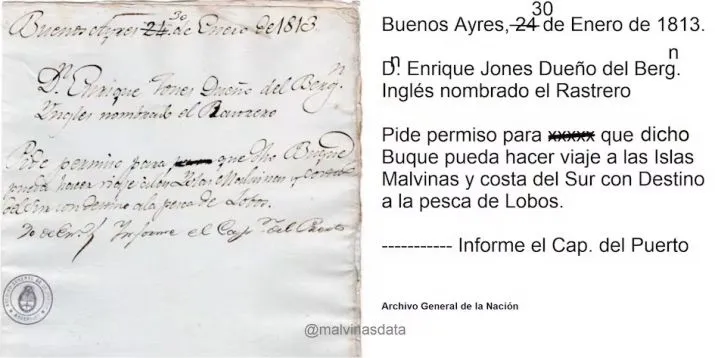 30
Buenos Ayres 24 de Enero de 1813.
Dn. Enrique Jones Dueño del Bergn.
Yngles nombrado el Rastrero
Pide permiso para que dho Buque
pueda hacer viaje a las Yslas Malvinas y Costa
del Sur con Destino a la pesca de Lobos.
Informe el Capn. del Puerto
30
Buenos Ayres, 24 de Enero de 1813.
Dn. Enrique Jones Dueño del Bergn.
Inglés nombrado el Rastrero
Pide permiso para xxxxx que dicho
Buque pueda hacer viaje a las Islas
Malvinas y costa del Sur con Destino
a la pesca de Lobos.
----------- Informe el Cap. del Puerto
Archivo General de la Nación
@malvinasdata